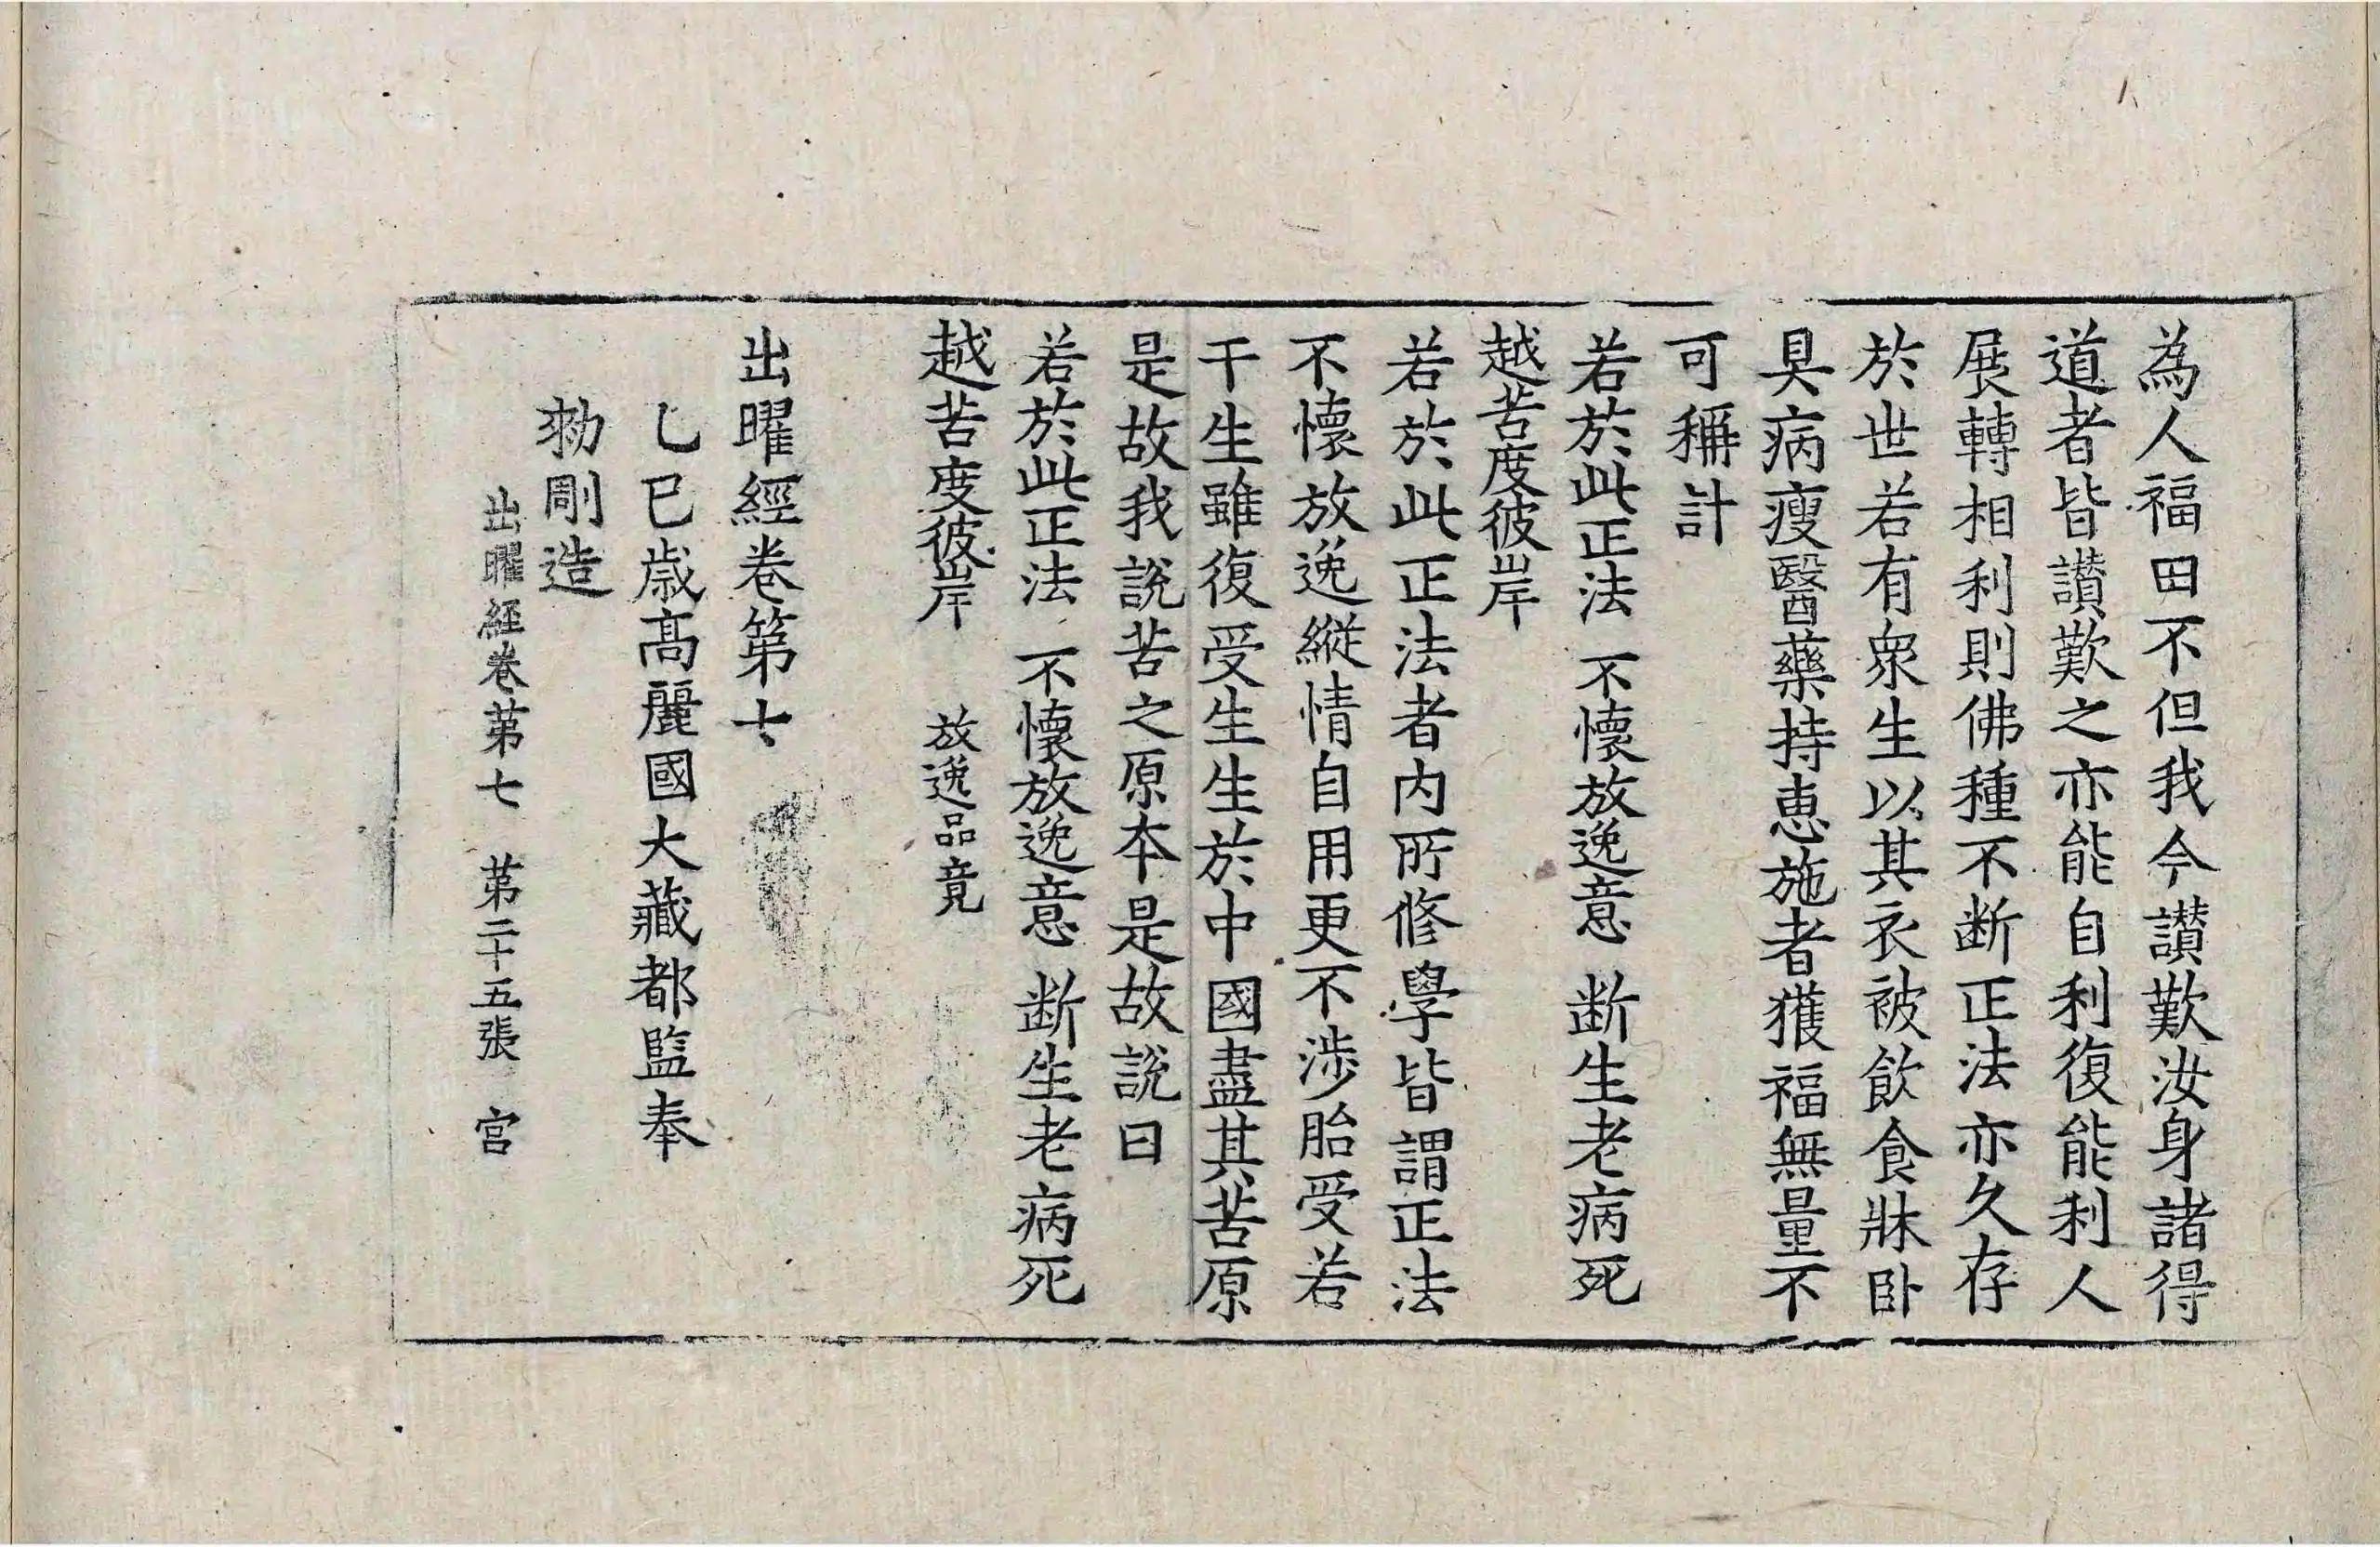 為人福田不但我今讃歎汝身諸得
道者皆讃歎之亦能自利復能利人
展轉相利則佛種不断正法亦久存
於世若有衆生以其衣被飲食牀卧
具病瘦醫藥持恵施者獲福無量不
可稱計
若於此正法 不懷放逸意 断生老病死
越苦度彼岸
若於此正法者内所修學皆謂正法
不懷放逸縱情自用更不渉胎受若
干生雖復受生生於中國盡其苦原
是故我說苦之原本是故說曰
若於此正法 不懷放逸意 断生老病死
越苦度彼岸 放逸品竟
出曜經卷第七
乙巳歳髙麗國大藏都監奉
勑剛造
出曜経卷第七 第二十五張 宫